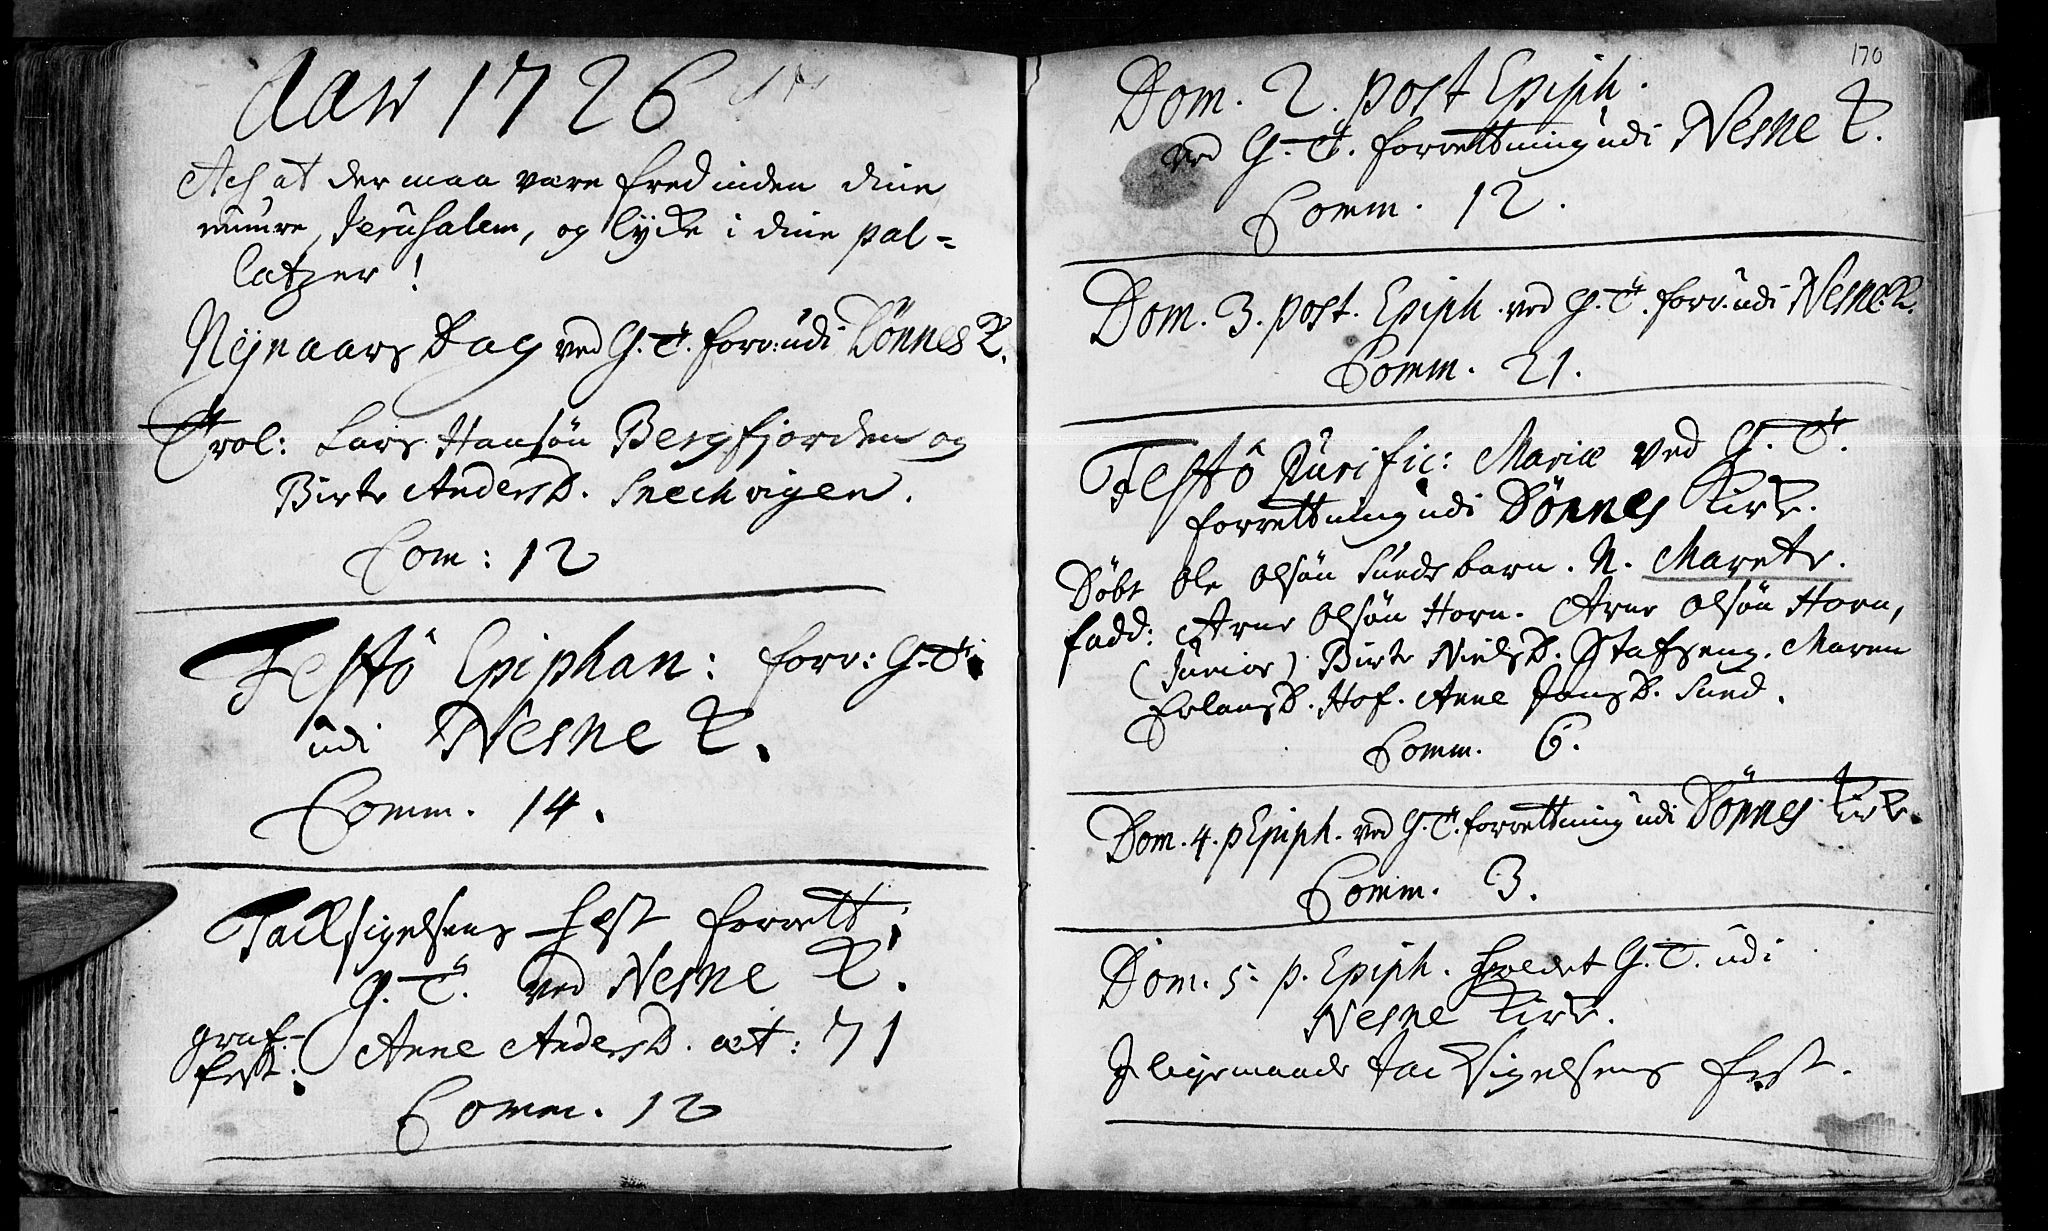 Aar 1726
Ach at der maa være fred inden dine
muure, Jerusalem, og lycke i dine pal-
latzer!
Nyynaars Dag ved G.T. forr: udi Dönnes K.
Trol: Lars Hansön Bergfjorden og
Birte AndersD. Snechvigen.
Com: 12
Festô Epiphan: forr: G.T.
udi Nesne K.
Comm. 14.
Tacksigelsens Fest forrett:
G.T. ved Nesne K.
graf-
fest: Anne AndersD. æt: 71
Comm. 12
170
Dom. 2. post Epiph.
ved G.T. forrettning udi Nesne K.
Comm. 12.
Dom. 3. post. Epiph. ved G.T. forr. udi Nesne K.
Comm. 21.
Festô Purific: Mariæ ved G.T.
forrettning udi Dönnes Kirke.
Döbt Ole Olsön Sunds barn. N. Marete.
fadd: Arne Olsön Horn. Arne Olsön Horn,
(Junior) Birte NielsD. Stafseng. Maren
ErlansD. Hof. Anne JonsD. Sund.
Comm. 6.
Dom. 4. p Epiph. ved G.T. forrettning udi Dönnes Kirke.
Comm. 3.
Dom. 5. p. Epiph. holdet G.T. udi
Nesne Kirke.
Jligemaade Tacksigelsens fest.